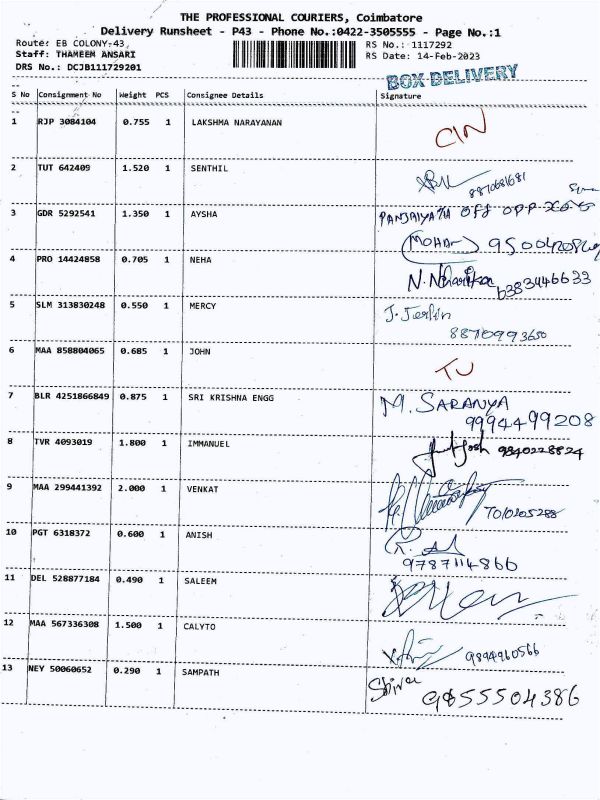 THE PROFESSIONAL COURIERS, Coimbatore
Delivery Runsheet - P43 - Phone No.:0422-3505555 - Page No.:1
Route: EB COLONY-43, RS No.: 1117292
Staff: THAMEEM ANSARI RS Date: 14-Feb-2023
DRS No.: DCJB111729201
BOX DELIVERY
S No Consignment No Weight PCS Consignee Details Signature
1 RJP 3084104 0.755 1 LAKSHMA NARAYANAN CIN
2 TUT 642409 1.520 1 SENTHIL 8870681681
3 GDR 5292541 1.350 1 AYSHA off opp
MOHAN
4 PRO 14424858 0.705 1 NEHA N. 6383446633
5 SLM 313830248 0.550 1 MERCY J. Jerlin
8870993650
6 MAA 858804065 0.685 1 JOHN TU
7 BLR 4251866849 0.875 1 SRI KRISHNA ENGG M. SARANYA
9994499208
8 TVR 4093019 1.800 1 IMMANUEL 9840228824
9 MAA 299441392 2.000 1 VENKAT
10 PGT 6318372 0.600 1 ANISH
9787114866
11 DEL 528877184 0.490 1 SALEEM
12 MAA 567336308 1.500 1 CALYTO 9894960566
13 NEY 50060652 0.290 1 SAMPATH 9855504386